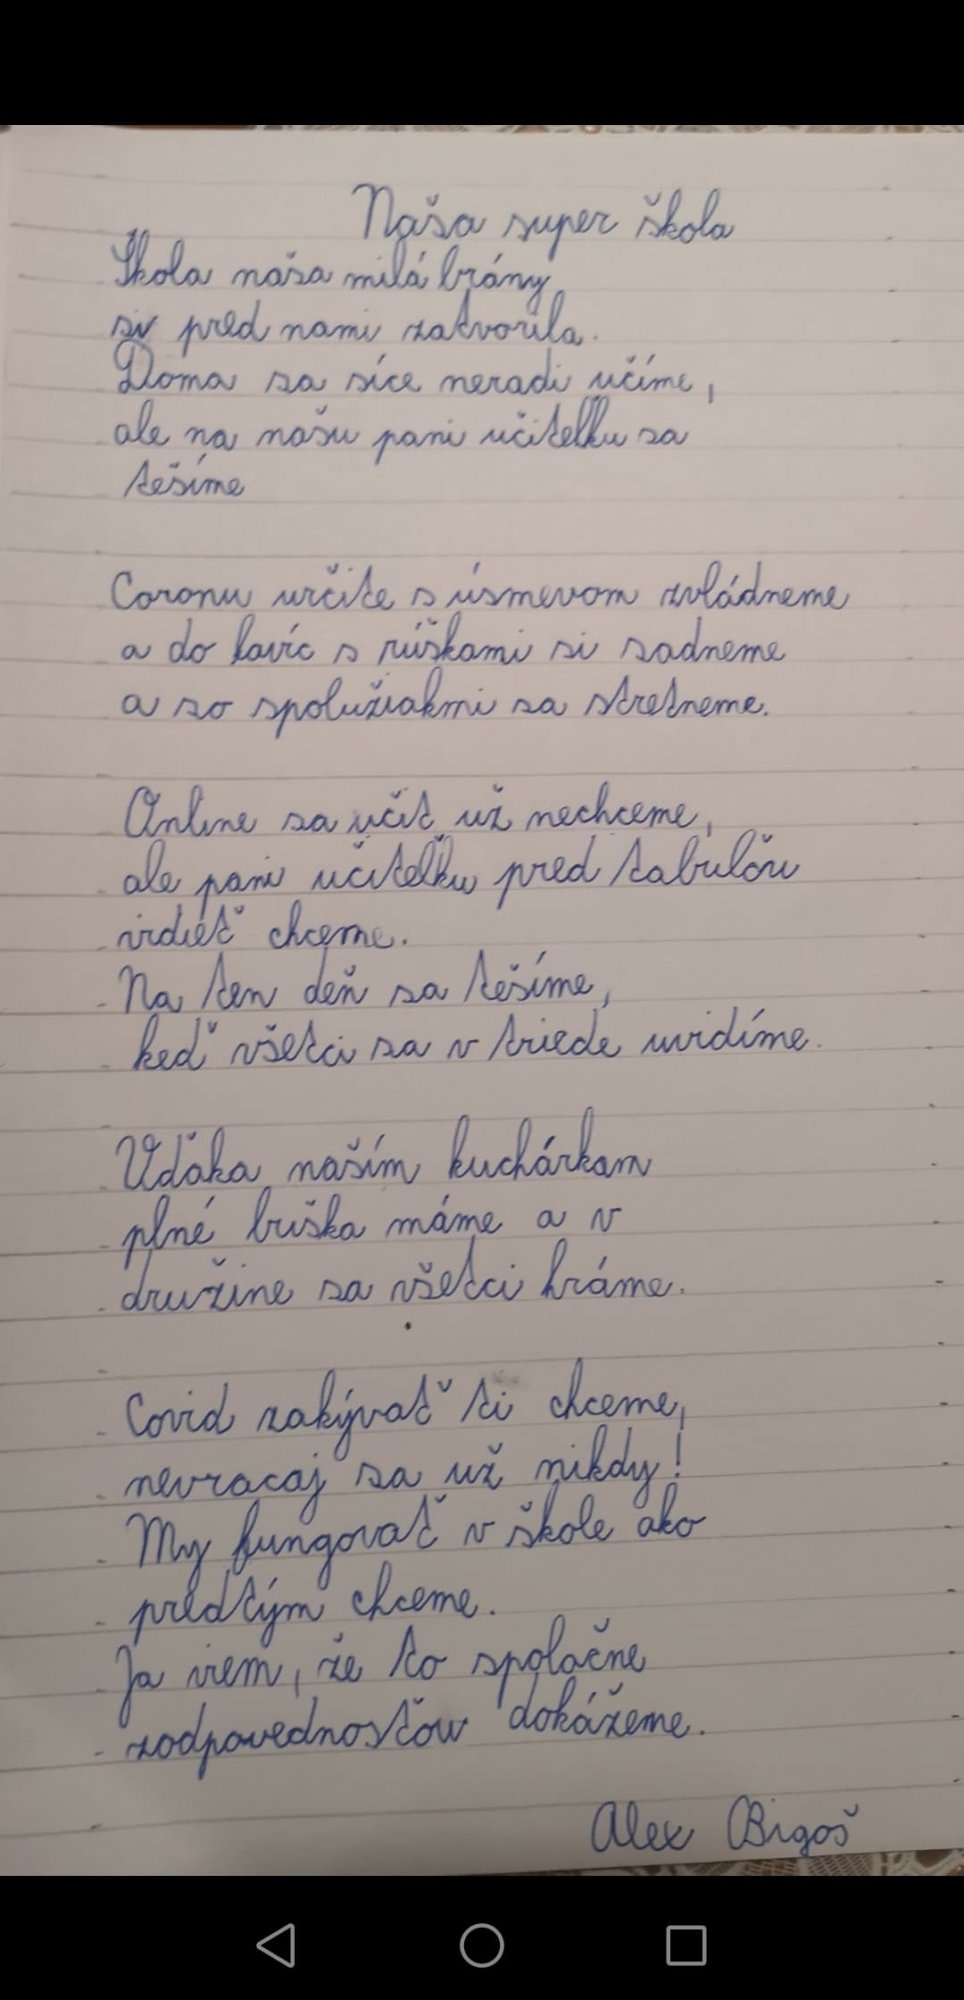 Naša super škola
Škola naša milá brány
si pred nami zatvorila.
Doma sa síce neradi učíme,
ale na našu pani učiteľku sa
tešíme
Coronu určite s úsmevom zvládneme
a do lavíc s rúškami si sadneme
a so spolužiakmi sa stretneme.
Online sa učit už nechceme,
ale pani učiteľku pred tabuľou
vidieť chceme.
Na ten deň sa tešíme,
keď všetci sa v triede uvidíme.
Vďaka naším kuchárkam
plné bruška máme a v
družine sa všetci hráme.
Covid zakývať ti chceme,
nevracaj sa už nikdy!
My fungovať v škole ako
predtým chceme.
Ja viem, že to spoločne
zodpovednosťou dokážeme.
Alex Bigoš